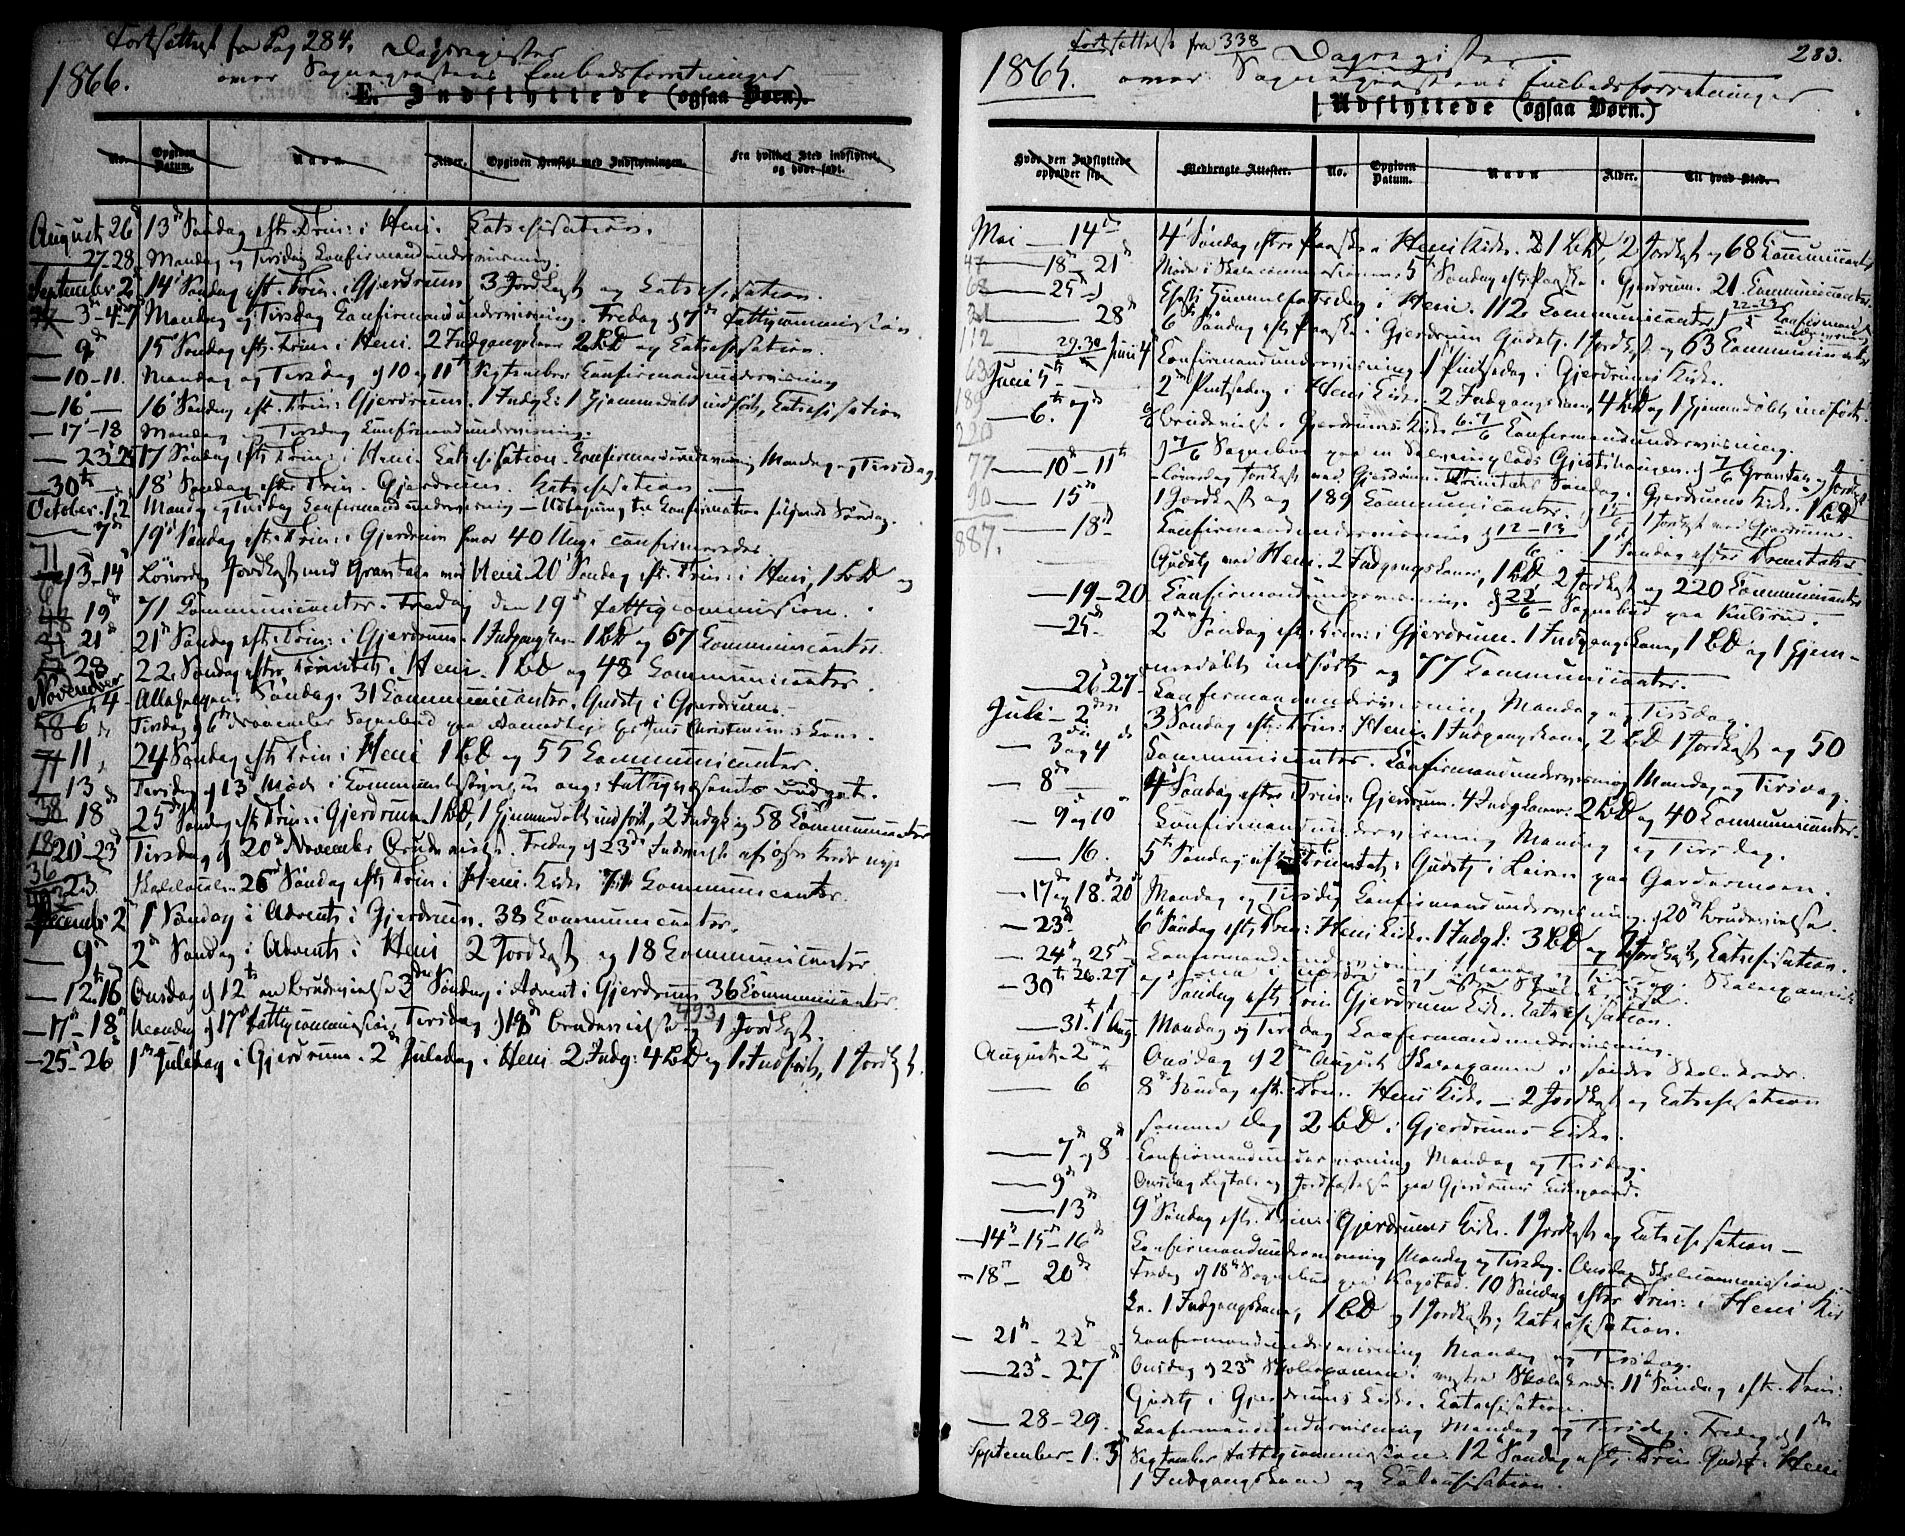 Fortsættelse fra Pag 284. Dagsregister
1866. over Sognepræstens Embedsforretninger
E. Indflyttede (ogsaa Børn).
No. Opgiven Datum. Navn. Alder. Opgiven Hensigt med Indflytningen. Fra hvilket Sted indflyttet, og hvor født.
August 26 13de Søndag efter Trin: i Heni. Catechisation.
27-28 Mandag og Tirsdag Confirmandundervisning.
September 2 14 Søndag eft. Trin. i Gjerdrum 3 Jordkast og Catechisation.
3-4-7 Mandag og Tirsdag Confirmandundervisning. Fredag d 7de Fattigcommission
9 15 Søndag eft. Trin: i Heni. 2 Indgangskoner 2 BD og Catechisation.
10-11. Mandag og Tirsdag d 10 og 11te September Confirmandundervisning
16 16 Søndag eft. Trin: Gjerdrum. 1 Indgk: 1 Hjemmedøbt indført, Catechisation
17-18 Mandag og Tirsdag Confirmandundervisning.
23 25 17 Søndag eft. Trin: i Heni. Catechisation. Confirmandundervisning Mandag og Tirsdag
30te 18 Søndag efter Trin. Gjerdrum. Catechisation
October 1.2 Mandag og Tirsdag Confirmandundervisning - Confirmation følgende Søndag.
7de 19de Søndag eft. Trin: i Gjerdrum hvor 40 Unge confirmeredes.
71 13-14 Lørdag Jordkast med Gravtale ved Heni 20 Søndag eft. Trin: i Heni, 1 BD og
19 71 Communicanter. Fredag den 19de Fattigcommission.
21 21de Søndag eft. Trin: i Gjerdrum. 1 Indgangskone 1 BD og 67 Communicanter.
28 22 Søndag efter Trinitatis. Heni. 1 BD og 48 Communicanter.
November 4 Allehelgens Søndag. 31 Communicanter. Gudstj i Gjerdrum.
6 Tirsdag d 6te November Sognebud paa
11 24 Søndag eft. Trin i Heni 1 BD og 55 Communicanter.
13 Tirsdag d 13de Møde i Communebestyrelsen ang: Fattigvæsenets Budget.
18 25de Søndag eft. Trin: i Gjerdrum 1 BD, 1 Hjemmedøbt indført, 2 Indgk og 58 Communicanter
20-23 Tirsdag d 20de November Brudevielse. Fredag d 23de
23 26de Søndag eft. Trin: i Heni Kirke 71 Communicanter.
December 2 1 Søndag i Advent i Gjerdrum. 38 Communicanter.
9 2 Søndag i Advent i Heni 2 Jordkast og 18 Communicanter
12te 16 Onsdag d 12te en Brudevielse 3 Søndag i Advent i Gjerdrum 36 Communicanter.
493
17-18 Mandag d 17de Fattigcommission Tirsdag d 18de Brudevielse og 1 Jordkast.
25-26 1ste Juledag i Gjerdrum. 2den Juledag i Heni 2 Indg: 4 BD og 1 Indført, 1 Jordk.
Fortsættelse fra 338 Dagsregister 283.
1865. over Sognepræstens Embedsforretninger
Udflyttede (ogsaa Børn.)
Hvor den Indflyttede opholder sig. Medbragte Attester. No. Opgiven Datum. Navn Alder. Til hvad Sted.
Mai 14de 4 Søndag efter Paaske i Heni Kirke. 1 BD, 2 Jordkast og 68 Communicanter
18-21 Møde i Skolecommissionen 5 Søndag eft. Paaske i Gjerdrum. 21 Communicanter.
25 Christi Himmelfartsdag i Heni. 112 Communicanter 22-23/5 Confirmandundervisning
28 6 Søndag eft. Paaske i Gjerdrum Gudstj. 1 Jordkast og 63 Communicanter
29.30 Juni 4 Confirmandundervisning. 1 Pintsedag i Gjerdrums Kirke.
Juni 5te 2den Pintsedag i Heni Kirke. 2 Indgangskoner, 4 BD og 1 Hjemmedøbt indført.
6. 7 Brudevielse i Gjerdrums Kirke. 6.7/6 Confirmandundervisning.
10-11 Lørdag Jordkast ved Gjerdrum. Trinitatis Søndag i Gjerdrums Kirke. 1 BD
15 1 Jordkast og 189 Communicanter. 1 Jordkast ved Gjerdrum.
18 Confirmandundervisning d 12-13/6. 1 Søndag efter Trinitatis
887. Gudstj ved Heni. 2 Indgangskoner, 1 BD 2 Jordkast og 220 Communicanter
19-20 Confirmandundervisning. d 22/6 Sognebud paa Kulsrud.
25 2den Søndag eft. Trin: i Gjerdrum. 1 Indgangskone, 1 BD og 1 Hjem-
medøbt indført og 77 Communicanter.
26-27 Confirmandundervisning Mandag og Tirsdag.
Juli 2den 3 Søndag eft. Trin: Heni. 1 Indgangskone, 2 BD 1 Jordkast og 50
3 og 4 Communicanter. Confirmandundervisning Mandag og Tirsdag.
8 4 Søndag efter Trin: Gjerdrum. 4 Indgkoner. 2 BD og 40 Communicanter.
9 og 10 Confirmandundervisning Mandag og Tirsdag.
16. 5te Søndag eft. Trinitatis Gudstj i Leiren paa Gardermoen.
17 og 18. 20 Mandag og Tirsdag Confirmandundervisning. d 20de Brudevielse.
23 6te Søndag eft. Trin: Heni Kirke. 1 Indgk: 3 BD og 2 Jordkast, Catechisation.
24 25 Confirmandundervisning Mandag og Tirsdag.
30te 26.27 7 Søndag eft. Trin Gjerdrum Kirke. Catechisation.
31. 1 Aug Mandag og Tirsdag Confirmandundervisning.
August 2 Onsdag d 2den August Skoleexamen i søndre Skolekreds.
6 8de Søndag eft. Trin: Heni Kirke - 2 Jordkast og Catechisation
samme Dag 2 BD i Gjerdrums Kirke.
7 og 8 Confirmandundervisning Mandag og Tirsdag.
9 Onsdag Ligtale og Jordfæstelse paa Gjerdrums Kirkegaard.
13 9 Søndag eft. Trin: i Gjerdrums Kirke. 1 Jordkast og Catechisation
14-15-16 Confirmandundervisning Mandag og Tirsdag. Onsdag Skolecommission
18-20 Fredag d 18de Sognebud paa 10 Søndag efter Trin: i Heni Kir
ke. 1 Indgangskone, 1 BD og 1 Jordkast, Catechisation.
21-22 Confirmandundervisning Mandag og Tirsdag.
23-27 Onsdag d 23de Skoleexamen i vestre Skolekreds. 11te Søndag eft. Trin:
Gudstj i Gjerdrums Kirke. Catechisation.
28-29. Confirmandundervisning Mandag og Tirsdag. Fredag d 1
September 1. 3 September Fattigcommission. 12te Søndag eft. Trin Gudst. Heni
1 Indgangskone og Catechisation.